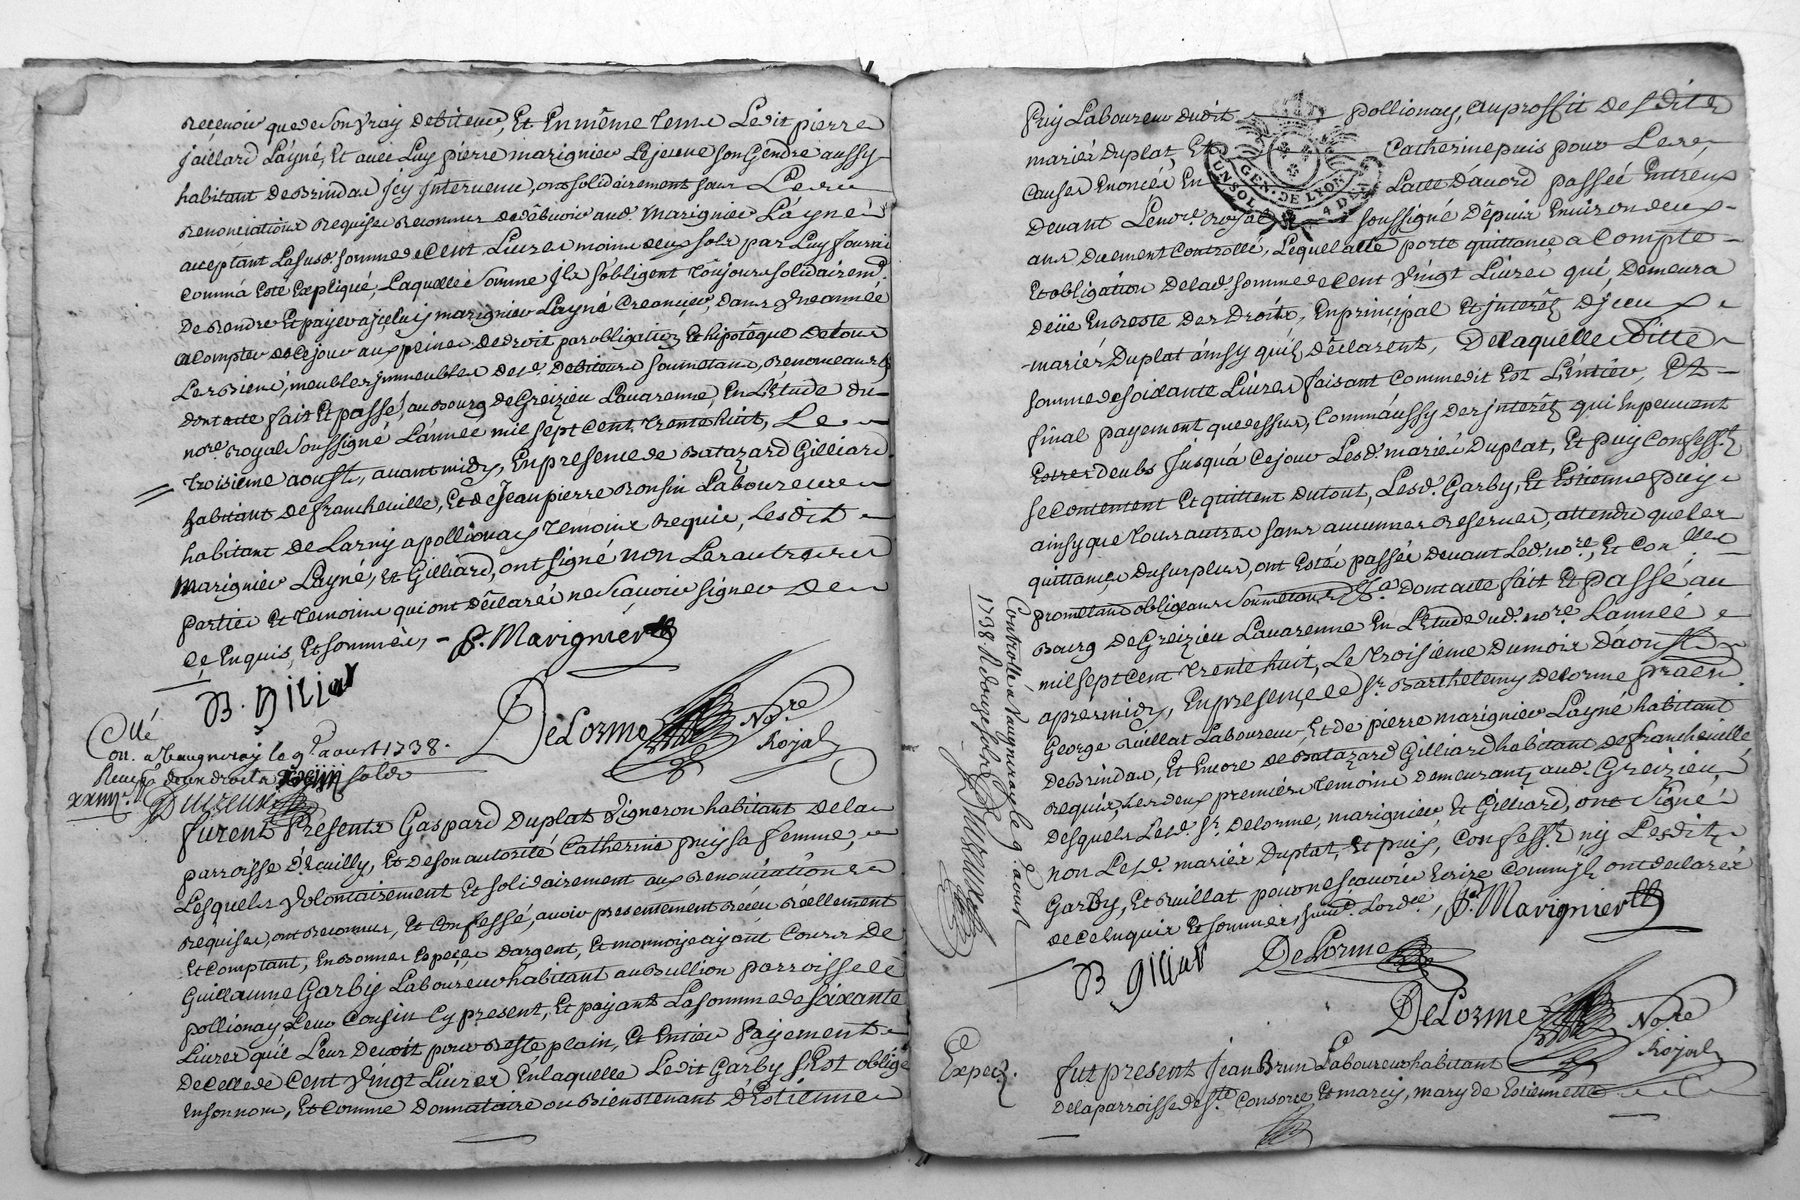 recevoir que de son vray debiteur, Et En même tems Ledit pierre
Jaillard Layné, Et avec Luy pierre marignier Lejeune son Gendre aussy
habitant de Brindas Jcy Jntervenu, ont solidairement sous Les
renonciations requises reconnus de debvoir aud. Marignier Layné
acceptant La susd. somme de Cent Livres moins deux sols par Luy fourni
comm'a Esté Expliqué, Laquelle somme Jls s'obligent toujours solidairemt.
De Rendre Et payer a jceluy marignier Layné Creancier, dans Une année
a Compter de Cejour aux peines de droit par obligation Et hipotêque de tous
Les Biens, meubles Jmmeubles desd. Debiteurs soumetans, Renonceans &
dont acte fait Et passé, au Bourg de Greizieu Lavarenne, En L'Etude du
nore. Royal soussigné L'année mil sept Cent trente huit, Le
troisieme aoust, avant midy, En presence de Batazard Gilliard
habitant de francheville, Et de Jean pierre Ronsin Laboureur
habitant de Larny a pollionay temoins Requis, Lesdits
Marignier Layné, Et Gilliard, ont signé non Les autres
parties Et temoins qui ont déclaré ne sçavoir signer De
ce Enquis, Et sommés, - P. Marignier
B. Giliar
DeLorme Nore
Royal
Collé
Con. a Vaugneray le 9e aoust 1738.
Receu douze sols
furent Presents Gaspard Duplat Vigneron habitant de la
parroisse D'Veuilly, Et de son autorité Catherine puy sa femme,
Lesquels Volontairement Et solidairement aux Renonciations
requises, ont reconnus, Et Confessé, avoir presentement Receu Réellement
Et Comptant, En Bonnes Especes d'argent, Et monnoye ayant Cours De
Guillaume Garby Laboureur habitant au Bullion parroisse de
pollionay Leur Cousin Cy present, Et payant La somme de soixante
Livres qu'il Leur Devoit pour Reste plain, Et Entier Payement
de Celle de Cent Vingt Livres En laquelle Ledit Garby s'Est obligé
En son nom, Et Comme Donnataire ou Bienstenant D'Estienne
Puy Laboureur dudit pollionay, au proffit Desdits
mariés Duplat, Et Catherine puis pour Les
Causes Enoncées En L'acte D'acord passé Entreux
Devant Le nore. royal soussigné Depuis Environ deux
GEN. DE LYON
UN SOL 4 DEN
ans Duement Controllé, Lequel acte porte quittance a Compte
Et obligation de lad. somme de Cent Vingt Livres qui, Demeura
deüe En Reste Des Droits, En principal Et jnterêts Djceux
mariés Duplat ainsy qu'ils déclarent, De laquelle Ditte
somme de soixante Livres faisant Comme dit Est L'entier, Et
final payement que dessus, Comm'aussy Des jnterêts qui En peuvent
Estre deubs Jusqu'á Cejour Lesd. mariés Duplat, Et Puy Confesst.
se Contentent Et quittent du tout, Lesd. Garby, Et Estienne puy
ainsy que tous autres sans aucunnes Reserves, attendu que Les
quittances du surplus, ont Esté passées devant Led. nore., Et Conlles
promettans obligeans soumetans &a. dont acte fait Et passé au
Bourg de Greizieu Lavarenne En L'Etude dud. nore. L'année
mil sept Cent trente huit, Le troisieme du mois D'aoust
apresmidy, En presence de Sr. Barthelemy Delorme praen.
George Ruillat Laboureur, Et de pierre marignier Layné habitant
De Brindas, Et Encore de Batazard Gilliard habitant de francheville
requis, Les deux premiers temoins demeurant aud. Greizieu
Desquels Lesd. Sr. Delorme, marignier, Et Gilliard, ont signé
non Lesd. mariés Duplat, Et puis, Confesst. ny Lesdits
Garby, Et Ruillat pour ne sçavoir Ecrire Comm'jls ont declarés
de Ce Enquis Et sommés, suivt. Lordce, P. Marignier
B Giliar
DeLorme
DeLorme Nore
Royal
Controllé a Vaugneray le 9e aoust
1738 R. douze sols
Exped.
fut present Jean Brun Laboureur habitant
de la parroisse de Ste. Consorce Et marcy, mary de Estiennette